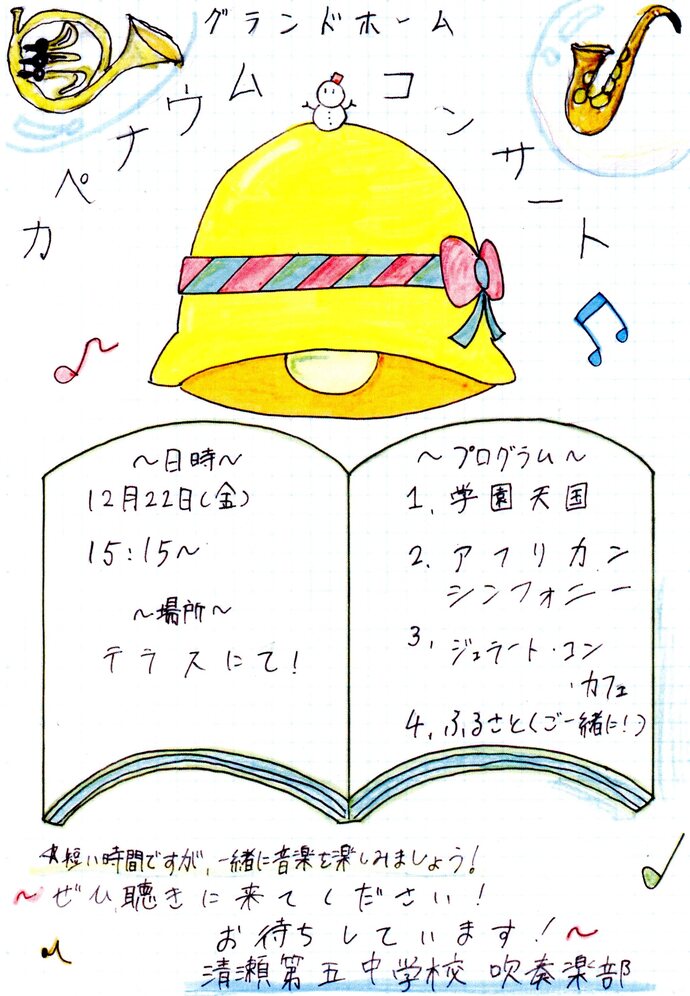 グランドホーム
カペナウム コンサート
～日時～
12月22日(金)
15:15～
～場所～
テラスにて!
～プログラム～
1. 学園天国
2. アフリカン
シンフォニー
3. ジェラート・コン
・カフェ
4. ふるさと(ご一緒に!)
☆短い時間ですが、一緒に音楽を楽しみましょう!
～ぜひ聴きに来てください!
お待ちしています!～
清瀬第五中学校 吹奏楽部